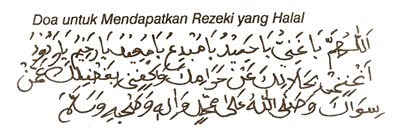 Doa untuk Mendapatkan Rezeki yang Halal
اَللّٰهُمَّ يَا غَنِيُّ يَا حَمِيْدُ يَا مُبْدِئُ يَا مُعِيْدُ يَا رَحِيْمُ يَا وَدُوْدُ
اَغْنِنِيْ بِحَلَالِكَ عَنْ حَرَامِكَ وَكْفِنِيْ بِفَضْلِكَ عَمَّنْ
سِوَاكَ وَصَلَّى اللهُ عَلَى مُحَمَّدٍ وَاٰلِهِ وَصَحْبِهِ وَسَلَّمَ